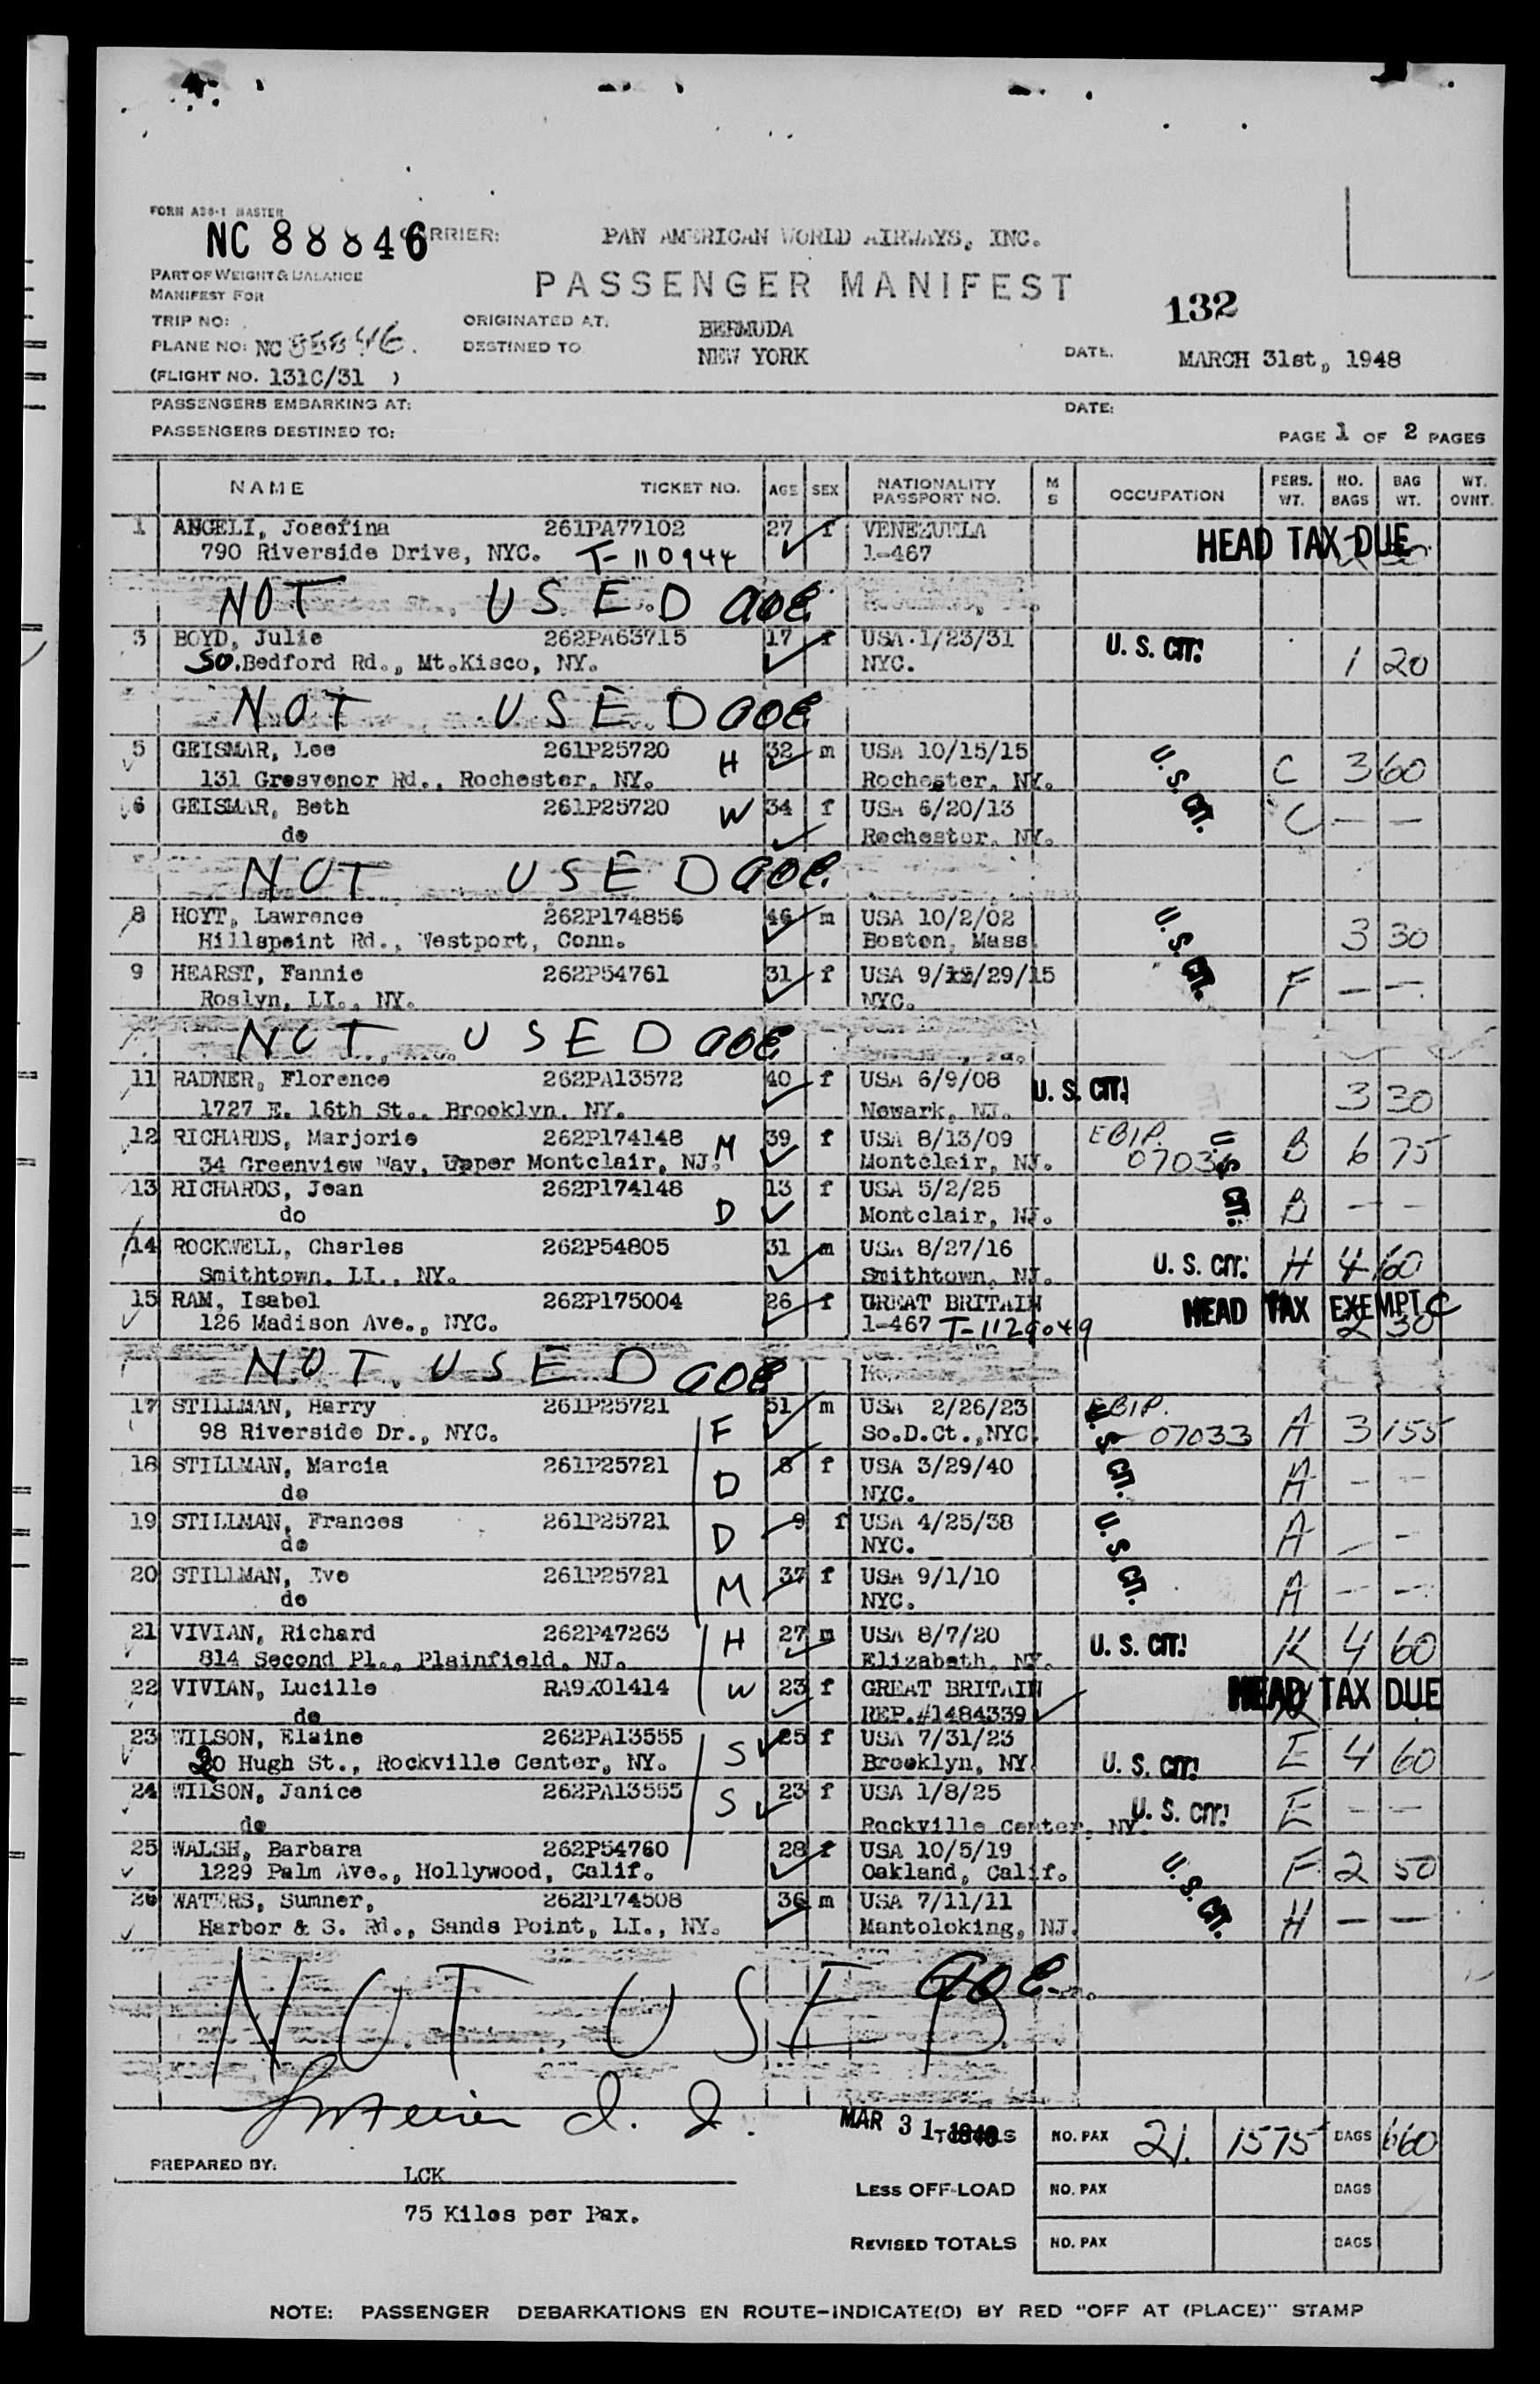 FORM A36-1 MASTER
NC 88846 CARRIER: PAN AMERICAN WORLD AIRWAYS, INC.
PART OF WEIGHT & BALANCE
MANIFEST FOR
PASSENGER MANIFEST
132
TRIP NO: ORIGINATED AT. BERMUDA
PLANE NO: NC 88846. DESTINED TO NEW YORK DATE. MARCH 31st, 1948
(FLIGHT NO. 131C/31 )
PASSENGERS EMBARKING AT: DATE:
PASSENGERS DESTINED TO: PAGE 1 OF 2 PAGES
NAME TICKET NO. AGE SEX NATIONALITY PASSPORT NO. M S OCCUPATION PERS. WT. NO. BAGS BAG WT. WT. OVNT.
1 ANGELI, Josefina 261PA77102 27 f VENEZUELA HEAD TAX DUE
790 Riverside Drive, NYC. T-110944 1-467
NOT USED
3 BOYD, Julie 262PA63715 17 f USA 1/23/31 U. S. CIT.
SO. Bedford Rd., Mt.Kisco, NY. NYC. 1 20
NOT USED
5 GEISMAR, Lee 261P25720 H 32 m USA 10/15/15 U. S. CIT. C 3 60
131 Grosvenor Rd., Rochester, NY. Rochester, NY.
6 GEISMAR, Beth 261P25720 W 34 f USA 6/20/13 C — —
do Rochester, NY.
NOT USED
8 HOYT, Lawrence 262P174856 46 m USA 10/2/02 U. S. CIT. 3 30
Hillspoint Rd., Westport, Conn. Boston, Mass.
9 HEARST, Fannie 262P54761 31 f USA 9/29/15 F — —
Roslyn, LI., NY. NYC.
NOT USED
11 RADNER, Florence 262PA13572 40 f USA 6/9/08 U. S. CIT. 3 30
1727 E. 16th St., Brooklyn, NY. Newark, NJ.
12 RICHARDS, Marjorie 262P174148 M 39 f USA 8/13/09 EBIP. U. S. CIT. B 6 75
34 Greenview Way, Upper Montclair, NJ. Montclair, NJ.
13 RICHARDS, Jean 262P174148 D 13 f USA 5/2/25 B — —
do Montclair, NJ.
14 ROCKWELL, Charles 262P54805 31 m USA 8/27/16 U. S. CIT. H 4 60
Smithtown, LI., NY. Smithtown, NJ.
15 RAM, Isabel 262P175004 26 f GREAT BRITAIN HEAD TAX EXEMPT C
126 Madison Ave., NYC. 1-467 T-1129049 2 30
NOT USED
17 STILLMAN, Harry 261P25721 F 51 m USA 2/26/23 EBIP. 07033 U. S. CIT. A 3 155
98 Riverside Dr., NYC. So.D.Ct.,NYC.
18 STILLMAN, Marcia 261P25721 D 8 f USA 3/29/40 A — —
do NYC.
19 STILLMAN, Frances 261P25721 D 9 f USA 4/25/38 U. S. CIT. A — —
do NYC.
20 STILLMAN, Eve 261P25721 M 37 f USA 9/1/10 A — —
do NYC.
21 VIVIAN, Richard 262P47263 H 27 m USA 8/7/20 U. S. CIT. K 4 60
814 Second Pl., Plainfield, NJ. Elizabeth, NY.
22 VIVIAN, Lucille RA9X01414 W 23 f GREAT BRITAIN HEAD TAX DUE
do REP.#1484339
23 WILSON, Elaine 262PA13555 S 25 f USA 7/31/23 U. S. CIT. E 4 60
20 Hugh St., Rockville Center, NY. Brooklyn, NY.
24 WILSON, Janice 262PA13555 S 23 f USA 1/8/25 U. S. CIT. E — —
do Rockville Center, NY.
25 WALSH, Barbara 262P54760 28 f USA 10/5/19 U. S. CIT. F 2 50
1229 Palm Ave., Hollywood, Calif. Oakland, Calif.
26 WATERS, Sumner, 262P174508 36 m USA 7/11/11 H — —
Harbor & S. Rd., Sands Point, LI., NY. Mantoloking, NJ.
NOT USED
MAR 31 1948 TOTALS NO. PAX 21. 1575 BAGS 660
PREPARED BY: LCK
LESS OFF-LOAD NO. PAX BAGS
75 Kilos per Pax.
REVISED TOTALS NO. PAX BAGS
NOTE: PASSENGER DEBARKATIONS EN ROUTE—INDICATE(D) BY RED "OFF AT (PLACE)" STAMP